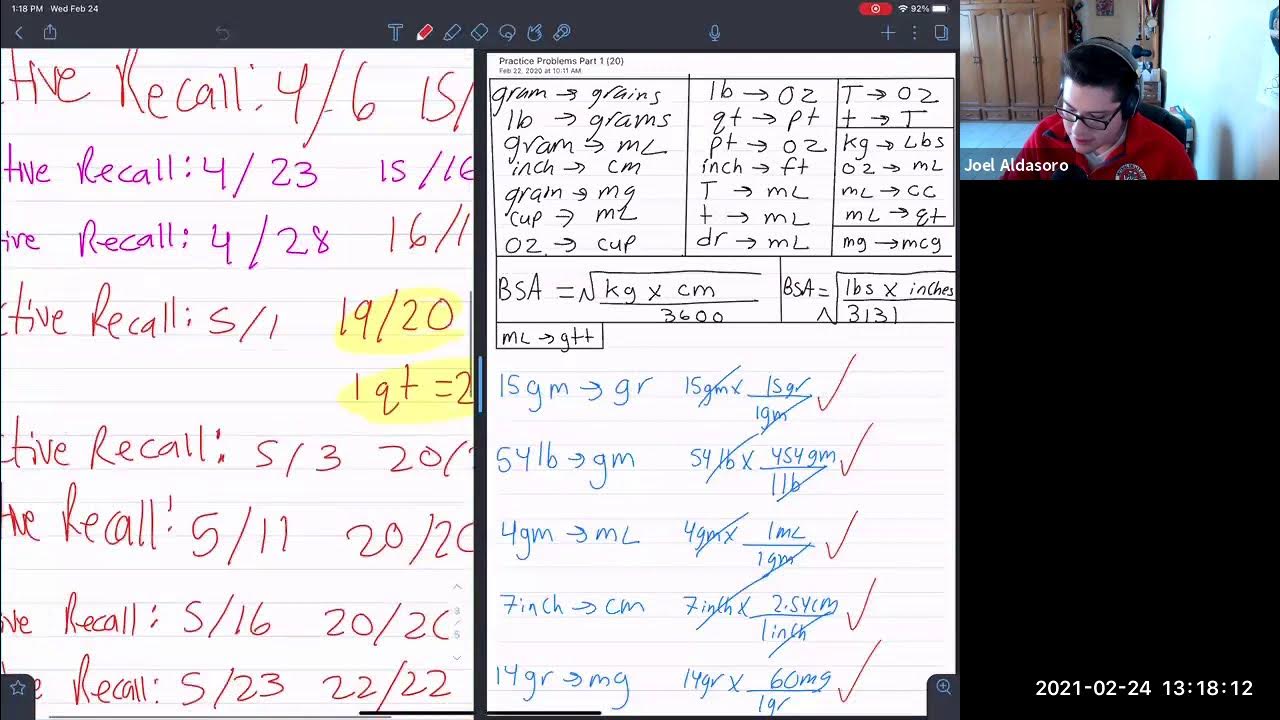 1:18 PM Wed Feb 24
92%
tive Recall: 4/6 15/
tive Recall: 4/23 15/16
ive Recall: 4/28 16/1
ctive Recall: 5/1 19/20
1 qt = 2
tive Recall: 5/3 20/
ve Recall: 5/11 20/20
ive Recall: 5/16 20/20
e Recall: 5/23 22/22
Practice Problems Part 1 (20)
Feb 22, 2020 at 10:11 AM
gram → grains
lb → grams
gram → mL
inch → cm
gram → mg
cup → mL
oz → cup
lb → oz
qt → pt
pt → oz
inch → ft
T → mL
t → mL
dr → mL
T → oz
t → T
kg → Lbs
oz → mL
mL → cc
mL → qt
mg → mcg
BSA = √ kg x cm
3600
BSA = √ lbs x inches
3131
mL → gtt
15gm → gr 15gm x 15gr
1gm
54lb → gm 54lb x 454gm
1lb
4gm → mL 4gm x 1mL
1gm
7inch → cm 7inch x 2.54cm
1inch
14gr → mg 14gr x 60mg
1gr
Joel Aldasoro
2021-02-24 13:18:12